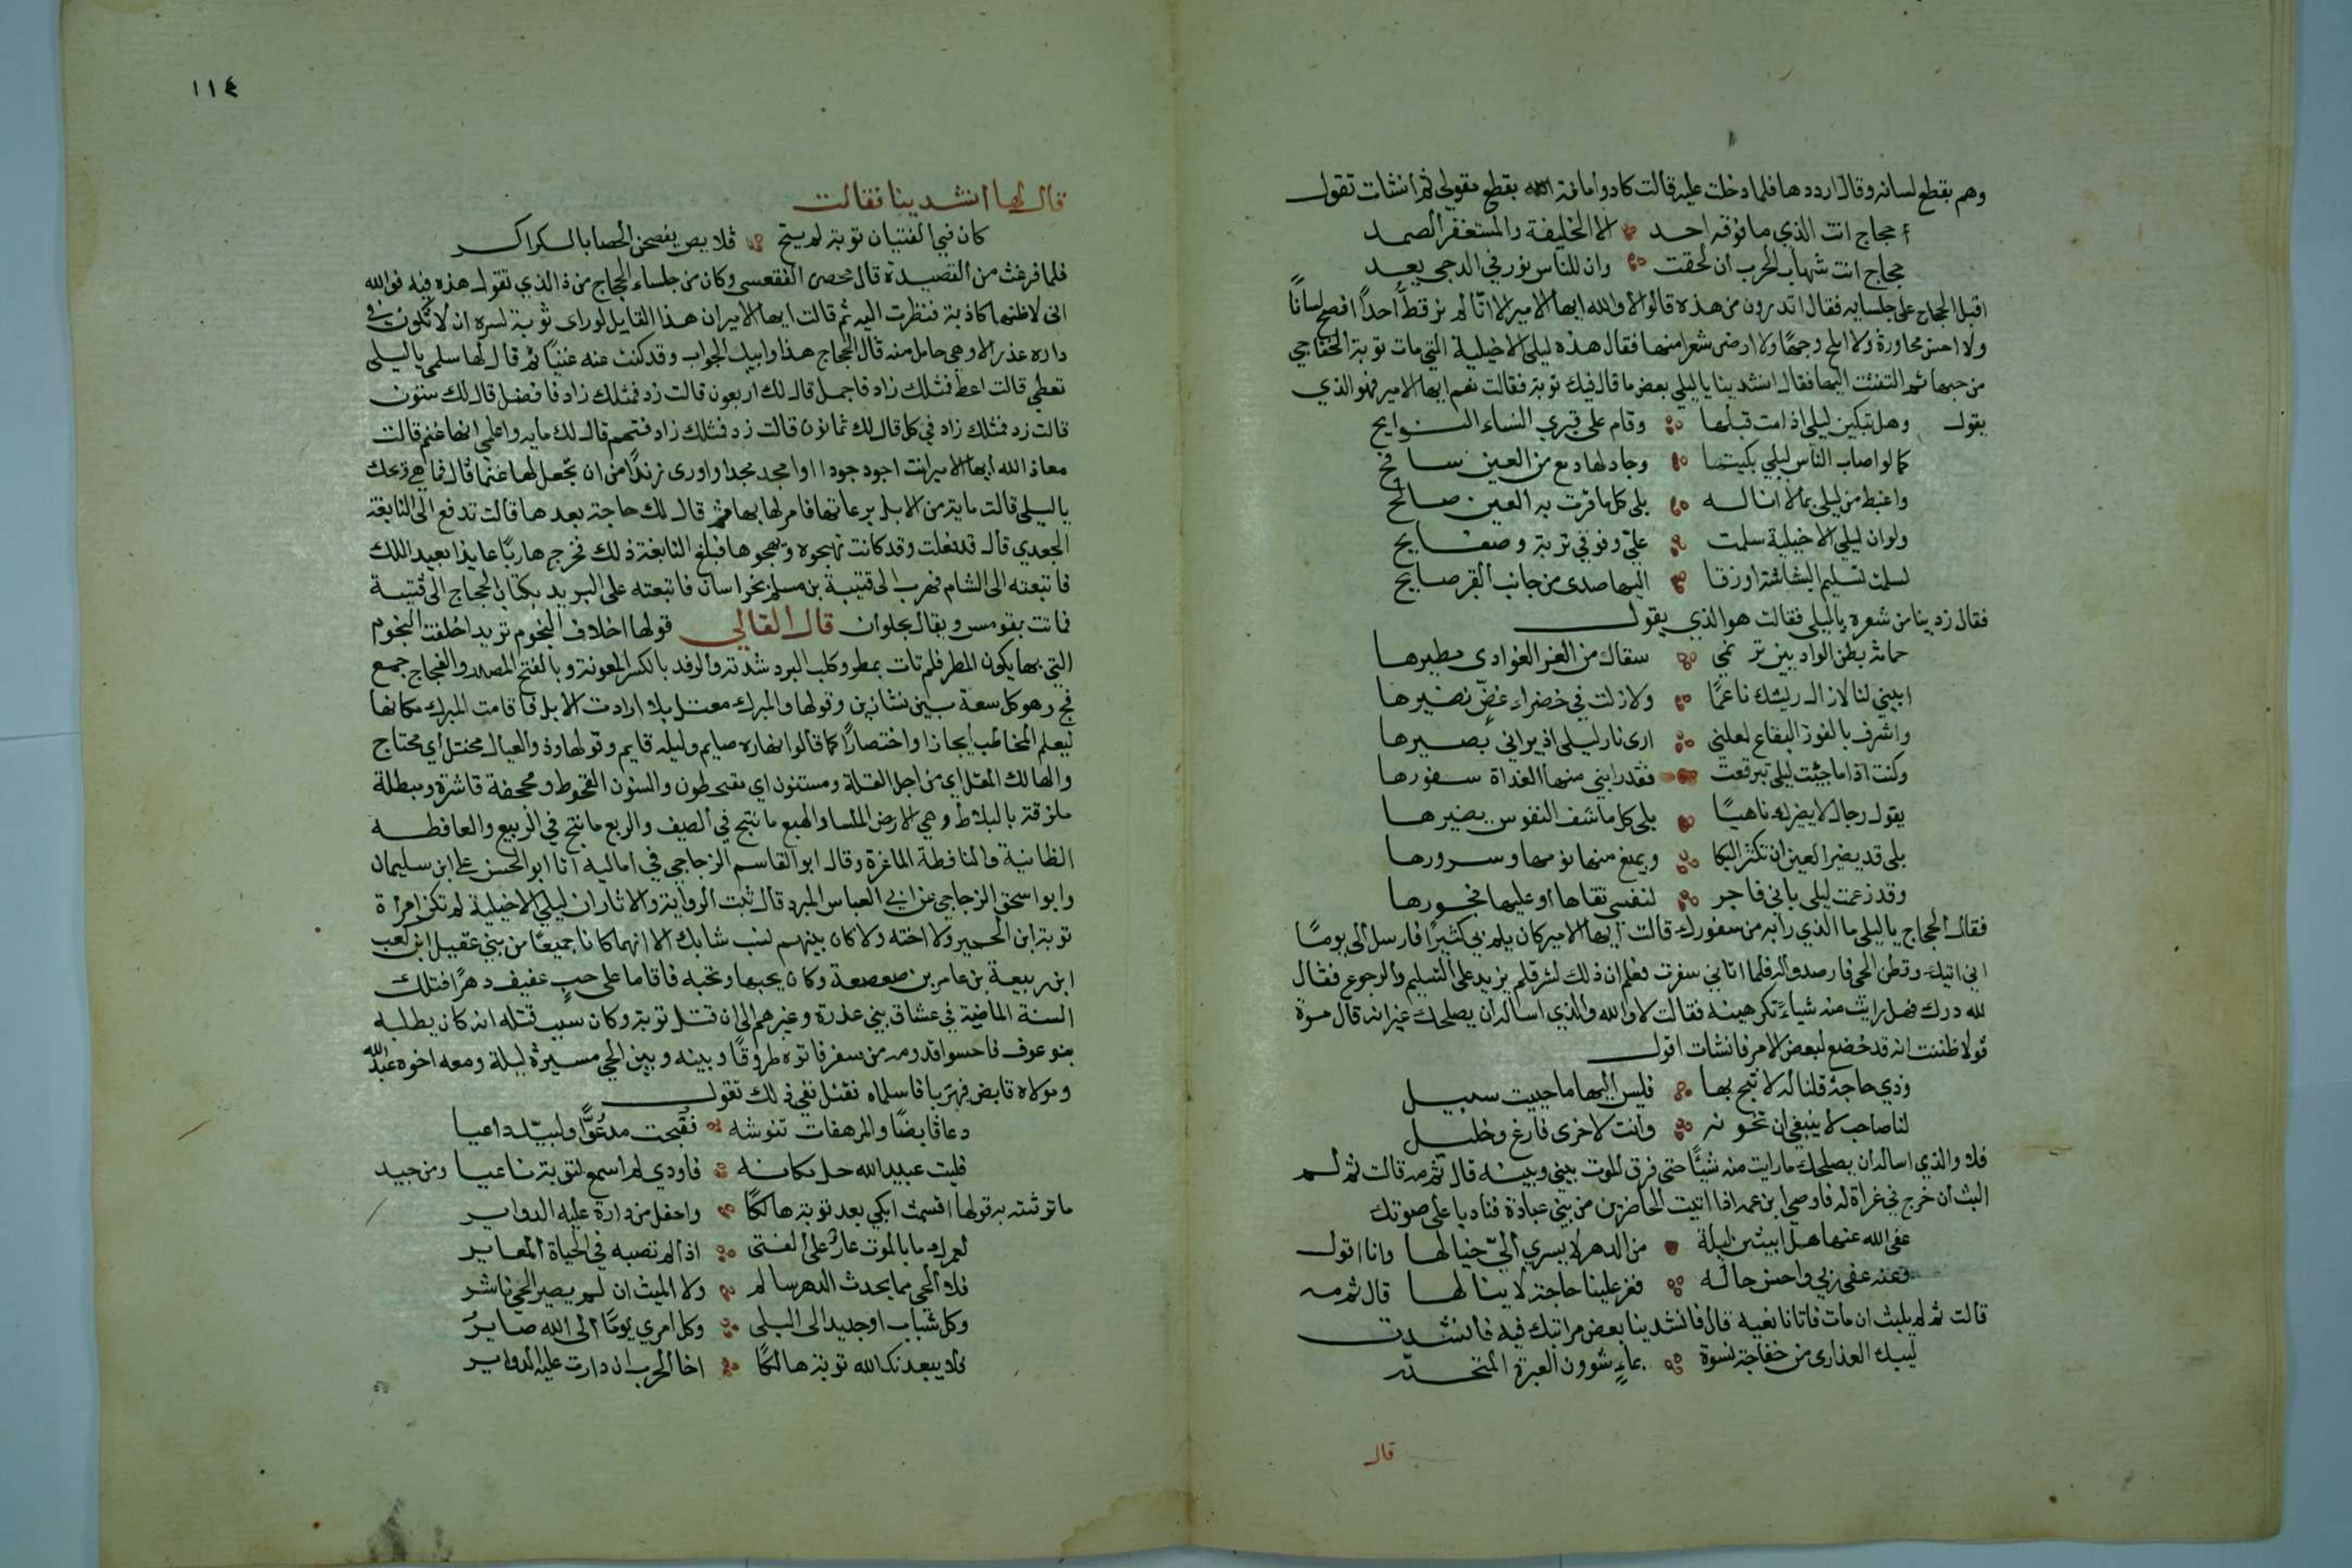 وهم بقطع لسانه وقال ارددها فلما دخلت عليه قالت كاد وامانة الله يقطع مقولي ثم انشات تقول
أحجاج انت الذي ما فوقه احد الا الخليفة والمستغفر الصمد
حجاج انت شهاب الحرب ان لحقت وان للناس نور في الدجى يعد
اقبل الحجاج على جلسايه فقال اتدرون من هذه قالوا لا والله ايها الامير الا انّا لم نر قطّ أحدًا افصح لسانًا
ولا احسن محاورة ولا املح وجهًا ولا ارضى شعرا منها فقال هذه ليلى الاخيلية التي مات توبة الخفاجي
من حبها ثم التفتت اليها فقال انشدينا يا ليلي بعض ما قال فيك توبة فقالت نعم ايها الامير فهو الذي
يقول وهل تبكين ليلى اذا مت قبلها وقام على قبري النساء النوايح
كما لو اصاب الناس ليلي بكيتها وجاد لها دمع من العين سافح
واغبط من ليلى بما لا اناله بلى كل ما قرت به العين صالح
ولو ان ليلى الاخيلية سلمت عليّ وفوقي تربة وصفايح
لسلمت تسليم البشاشة او زقا اليها صدى من جانب القبر صايح
فقال زدينا من شعره يا ليلى فقالت هو الذي يقول
حمامة بطن الواديين ترنمي سقاك من الغر الغوادى مطيرها
ابيني لنا لا زال ريشك ناعمًا ولا زلت في خضراء غضّ نضيرها
واشرف بالفوز اليفاع لعلني ارى نار ليلى اذ يراني بصيرها
وكنت اذا ما جيت ليلى تبرقعت فقد رابني منها الغداة سفورها
يقول رجال لا يضرك ناهيًا بلى كل ما شف النفوس يضيرها
بلى قد يضير العين ان تكثر البكا ويمنع منها نومها وسرورها
وقد زعمت ليلى باني فاجر لنفسي تقاها أو عليها فجورها
فقال الحجاج يا ليلى ما الذي رابه من سفورك قالت ايها الامير كان يلم بي كثيرًا فارسل الى يومًا
اني اتيك وفطن الحي فارصدوا له فلما اتاني سفرت فعلم ان ذلك لشر فلم يزيد على التسليم والرجوع فقال
لله درك فهل رايت منه شياء تكرهينه فقالت لا والله والذي اساله ان يصلحك غير انه قال مرة
قولا ظننت انه قد خضع لبعض الامر فانشات اقول
وذي حاجة قلنا له لا تبح بها فليس اليها ما حييت سبيل
لنا صاحب لا ينبغي ان نخونه وانت لاخرى فارغ وخليل
فلا والذي اساله ان يصلحك ما رايت منه شيئًا حتى فرق الموت بيني وبينه قال ثم مه قالت ثم لم
البث ان خرج في غزاة له فاوصى ابن عمه اذا اتيت الحاضرين من بني عبادة فناد باعلى صوتك
عفى الله عنها هل ابيتن ليلة من الدهر لا يسري اليّ خيالها وانا اقول
وعنه عفى ربي واحسن حاله فعز علينا حاجة لا ينالها قال ثم مه
قالت ثم لم يلبث ان مات فاتانا نعيه قال فانشدينا بعض مراثيك فيه فانشدت
ليبك العذارى من خفاجة نسوة بماء شوون العبرة المتحدّر
قال
١١٤
قال لها انشدينا فقالت
كان فتي الفتيان توبة لم ينخ قلايص يفحصن الحصا بالكراكر
فلما فرغت من القصيدة قال محصن الفقعسي وكان من جلساء الحجاج من ذا الذي تقول هذه فيه فوالله
اني لاظنها كاذبة فنظرت اليه ثم قالت ايها الامير ان هذا القايل لو راى توبة لسره ان لا تكون في
داره عذرا الا وهي حامل منه قال الحجاج هذا وابيك الجواب وقد كنت عنه غنيًا ثم قال لها سلمي يا ليلى
تعطي قالت اعط فمثلك زاد فاجمل قال لك اربعون قالت زد فمثلك زاد فافضل قال لك ستون
قالت زد فمثلك زاد في كل قال لك ثمانون قالت زد فمثلك زاد فتمم قال لك مايه واعلمي انها غنم قالت
معاذ الله ايها الامير انت اجود جودا اوامجد مجدا واورى زندًا من ان تجعل لها غنما قال فما هي ويحك
يا ليلي قالت ماية من الابل برعاتها فامر لها بها ثم قال لك حاجة بعدها قالت تدفع الى النابغة
الجعدي قال قد فعلت وقد كانت تهجوه ويهجوها فبلغ النابغة ذلك فخرج هاربًا عايذا بعبد الملك
فاتبعته الى الشام فهرب الى قتيبة بن مسلم بخراسان فاتبعته على البريد بكتاب الحجاج الى قتيبة
فماتت بقومس ويقال بحلوان قال القالي قولها اخلاف النجوم تريد اخلفت النجوم
التي بها يكون المطر فلم تات بمطر وكلب البرد شدته والرفد بالكسر المعونة وبالفتح المصدر والفجاج جمع
فج وهو كل سعة بين نشازين وقولها والمبرك معتل بلا ارادت الابل فاقامت المبرك مكانها
ليعلم المخاطب ايجازا واختصارًا كما قالوا نهاره صايم وليله قايم وقولها وذو العيال مختل أي محتاج
والهالك المقل اي من اجل القلة ومسنتون اي مقحطون والسنون القحوط ومجحفة قاشرة ومبطلة
ملزقة بالبلاط وهي الارض الملسا والهبع ما نتج في الصيف والربع ما نتج في الربيع والعافطه
الضاينة والنافطة الماعزة وقال ابو القاسم الزجاجي في اماليه انا ابو الحسن علي ابن سليمان
وابو اسحق الزجاجي عن ابي العباس المبرد قال ثبت الرواية والاثار ان ليلى الاخيلية لم تكن امراة
توبة ابن الحمير ولا اخته ولا كان بينهم نسب شابك الا انهما كانا جميعًا من بني عقيل ابن كعب
ابن ربيعة بن عامر بن صعصعة وكان يحبها وتحبه فاقاما على حبٍ عفيف دهرًا فتلك
السنة الماضية في عشاق بني عذرة وغيرهم الى ان قتل توبة وكان سبب قتله انه كان يطلبه
بنو عوف فاحسوا قدومه من سفر فاتوه طروقًا وبينه وبين الحي مسيرة ليلة ومعه اخوه عبدالله
ومولاه قابض فهربا فاسلماه فقتل ففي ذلك تقول
دعا قابضًا والمرهفات تنوشه فقُبحت مدعُوًّا ولبيّك داعيا
فليت عبيد الله حل مكانه فاودي لم اسمع لتوبة ناعيا ومن جيد
ما ترثته به قولها اقسمت ابكي بعد توبة هالكًا واحفل من دارة عليه الدواير
لعمرك ما بالموت عارٌ على الفتى اذا لم تصبه في الحياة المعاير
فلا الحي مما يحدث الدهر سالم ولا الميت ان لم يصبر الحي ناشر
وكل شباب او جديد الى البلى وكل امري يومًا الى الله صايرُ
فلا يبعدنك الله توبة هالكًا اخا الحرب ان دارت عليه الدواير